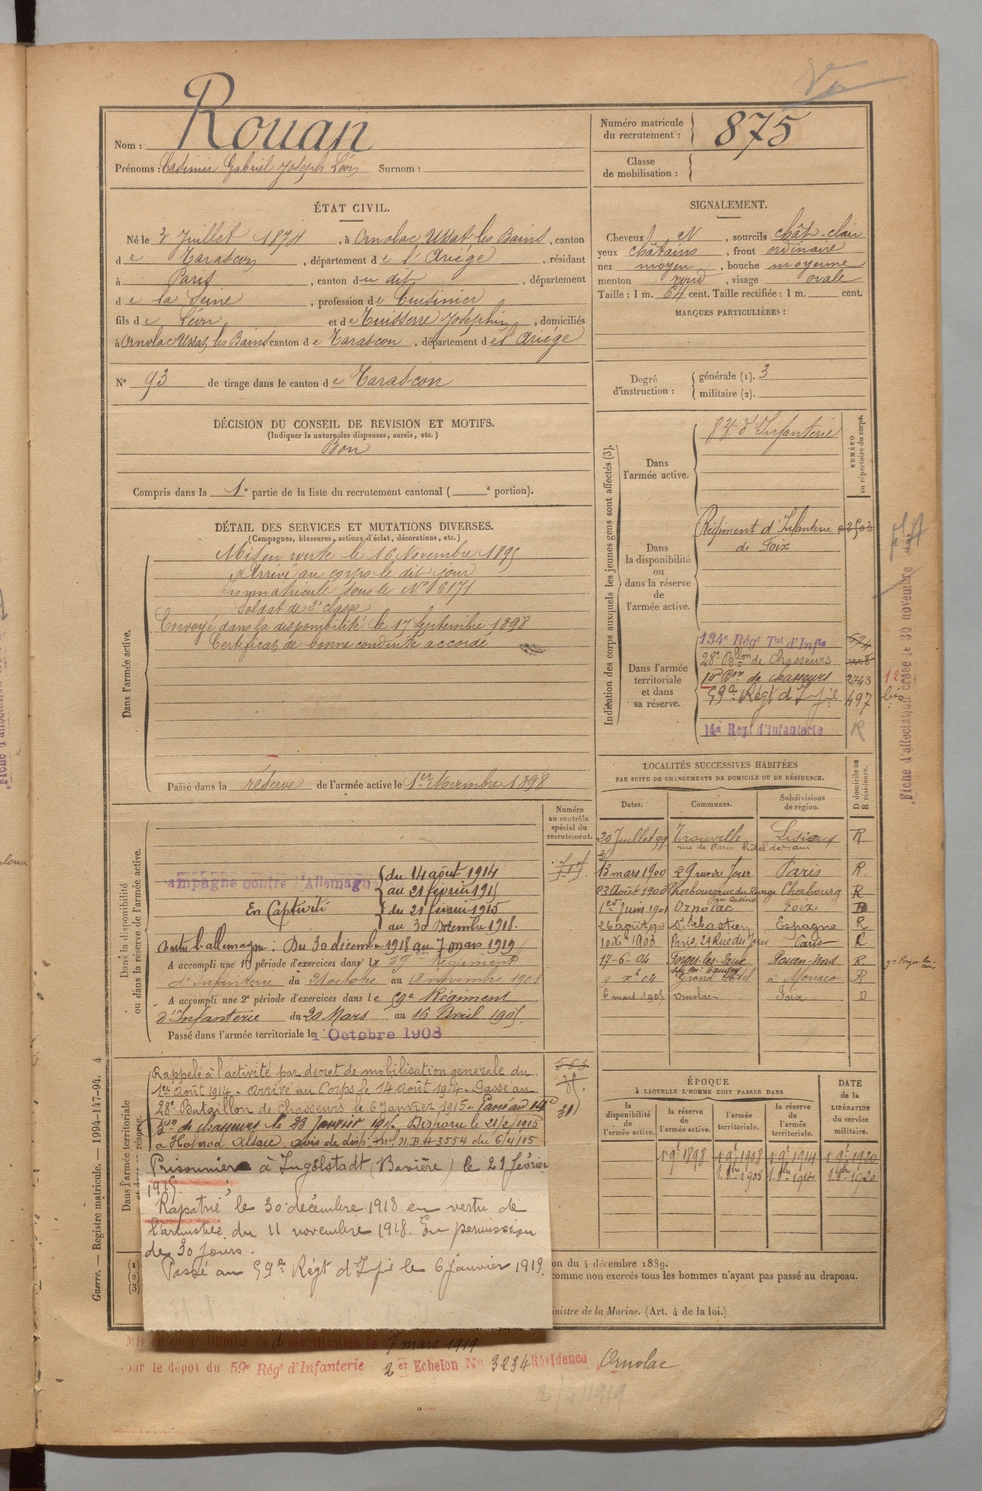 Rouan
Nom :
Prénoms : Casimir Gabriel Joseph Léon Surnom :
Numéro matricule
du recrutement : 875
Classe
de mobilisation :
ÉTAT CIVIL.
Né le 3 Juillet 1874, à Ornolac Ussat les Bains, canton
de Tarascon, département de l'Ariège, résidant
à Paris, canton du dit, département
de la Seine, profession de Cuisinier
fils de Léon et de Joséphine, domiciliés
à Ornolac Ussat les Bains canton de Tarascon, département de l'Ariège
N° 93 de tirage dans le canton de Tarascon
SIGNALEMENT.
Cheveux N, sourcils chât-clair
yeux châtains, front ordinaire
nez moyen, bouche moyenne
menton rond, visage ovale
Taille : 1 m. 64 cent. Taille rectifiée : 1 m. cent.
MARQUES PARTICULIÈRES :
Degré
d'instruction :
générale (1). 3
militaire (2).
DÉCISION DU CONSEIL DE REVISION ET MOTIFS.
(Indiquer la nature des dispenses, sursis, etc.)
Bon
Compris dans la 1e partie de la liste du recrutement cantonal ( e portion).
DÉTAIL DES SERVICES ET MUTATIONS DIVERSES.
(Campagnes, blessures, actions d'éclat, décorations, etc.)
Dans l'armée active.
Mis en route le 16 Novembre 1895
Arrivé au corps le dit jour
Immatriculé sous le N° 6171
Soldat de 2e classe
Envoyé dans la disponibilité le 17 Septembre 1898
Certificat de bonne conduite accordé
Passé dans la réserve de l'armée active le 1er Novembre 1898
Indication des corps auxquels les jeunes gens sont affectés (3).
NUMÉRO
au répertoire du corps.
Dans
l'armée active.
d'Infanterie
Dans
la disponibilité
ou
dans la réserve
de
l'armée active.
Régiment d'Infanterie
de Foix
Dans l'armée
territoriale
et dans
sa réserve.
134e Régt Tal d'Infie
28e Bllon de Chasseurs
de chasseurs 2743
59e Régt d'Infie 497 bis
14e Régt d'Infanterie R
Fiche d'affectation créée le 30 novembre
LOCALITÉS SUCCESSIVES HABITÉES
PAR SUITE DE CHANGEMENTS DE DOMICILE OU DE RÉSIDENCE.
D domicile ou
R résidence.
Dates. Communes. Subdivisions
de région.
20 Juillet 99 Trouville Lisieux R
rue de Paris
13 mars 1900 29 rue du Jour Paris R
23 Août 1900 Cherbourg Cherbourg R
1er Juin 1901 Ornolac Foix D
26 août 1903 St Sébastien Espagne R
1903 Paris, 29 Rue du Jour Paris R
17-6-04 Forges-les-Eaux Rouen-Nord R
04 Grand Hôtel à Monaco R
6 mai 1905 Ornolac Foix D
Numéro
au contrôle
spécial du
recrutement.
Dans la disponibilité
ou dans la réserve de l'armée active.
Campagne contre l'Allemagne du 14 août 1914
au 21 février 1915
En Captivité du 21 février 1915
au 30 décembre 1918.
Contre l'allemagne : Du 30 décembre 1918 au 7 mars 1919
A accompli une 1e période d'exercices dans le Régiment
d'Infanterie du 21 octobre au novembre 1901
A accompli une 2e période d'exercices dans le 59e Régiment
d'Infanterie du 20 Mars au 16 Avril 1905
Passé dans l'armée territoriale le 1 Octobre 1908
Dans l'armée territoriale
Rappelé à l'activité par décret de mobilisation générale du
1er Août 1914. Arrivé au Corps le 14 Août 1914. Passé au
28e Bataillon de Chasseurs le 6 Janvier 1915. Passé au 14e
Bon de chasseurs le 23 Janvier 1915. Disparu le 21/2/1915
à Hohrod Alsace. avis de disp. mel N. BH 3554 du 6/4/15
Prisonnier à Ingolstadt (Bavière) le 21 février
1915.
Rapatrié le 30 décembre 1918 en vertu de
l'armistice du 11 novembre 1918. En permission
de 30 jours.
Passé au 59e Régt d'Infie le 6 janvier 1919.
ÉPOQUE
À LAQUELLE L'HOMME DOIT PASSER DANS
DATE
DE LA
LIBÉRATION
DU
SERVICE
militaire.
la
disponibilité
de
l'armée active.
la réserve
de
l'armée active.
l'armée
territoriale.
la réserve
de
l'armée
territoriale.
1 9e 1898 1 9e 1908 1 9e 1914 1 9e 1920
on du 4 décembre 1889.
comme non exercés tous les hommes n'ayant pas passé au drapeau.
inistre de la Marine. (Art. 4 de la loi.)
Mis en congé illimité de démobilisation le 7 mars 1919
par le dépôt du 59e Régt d'Infanterie 2er Echelon N° 3234 Résidence Ornolac
2/4/1919
Guerre. — Registre matricule. — 1994-147-94. 4